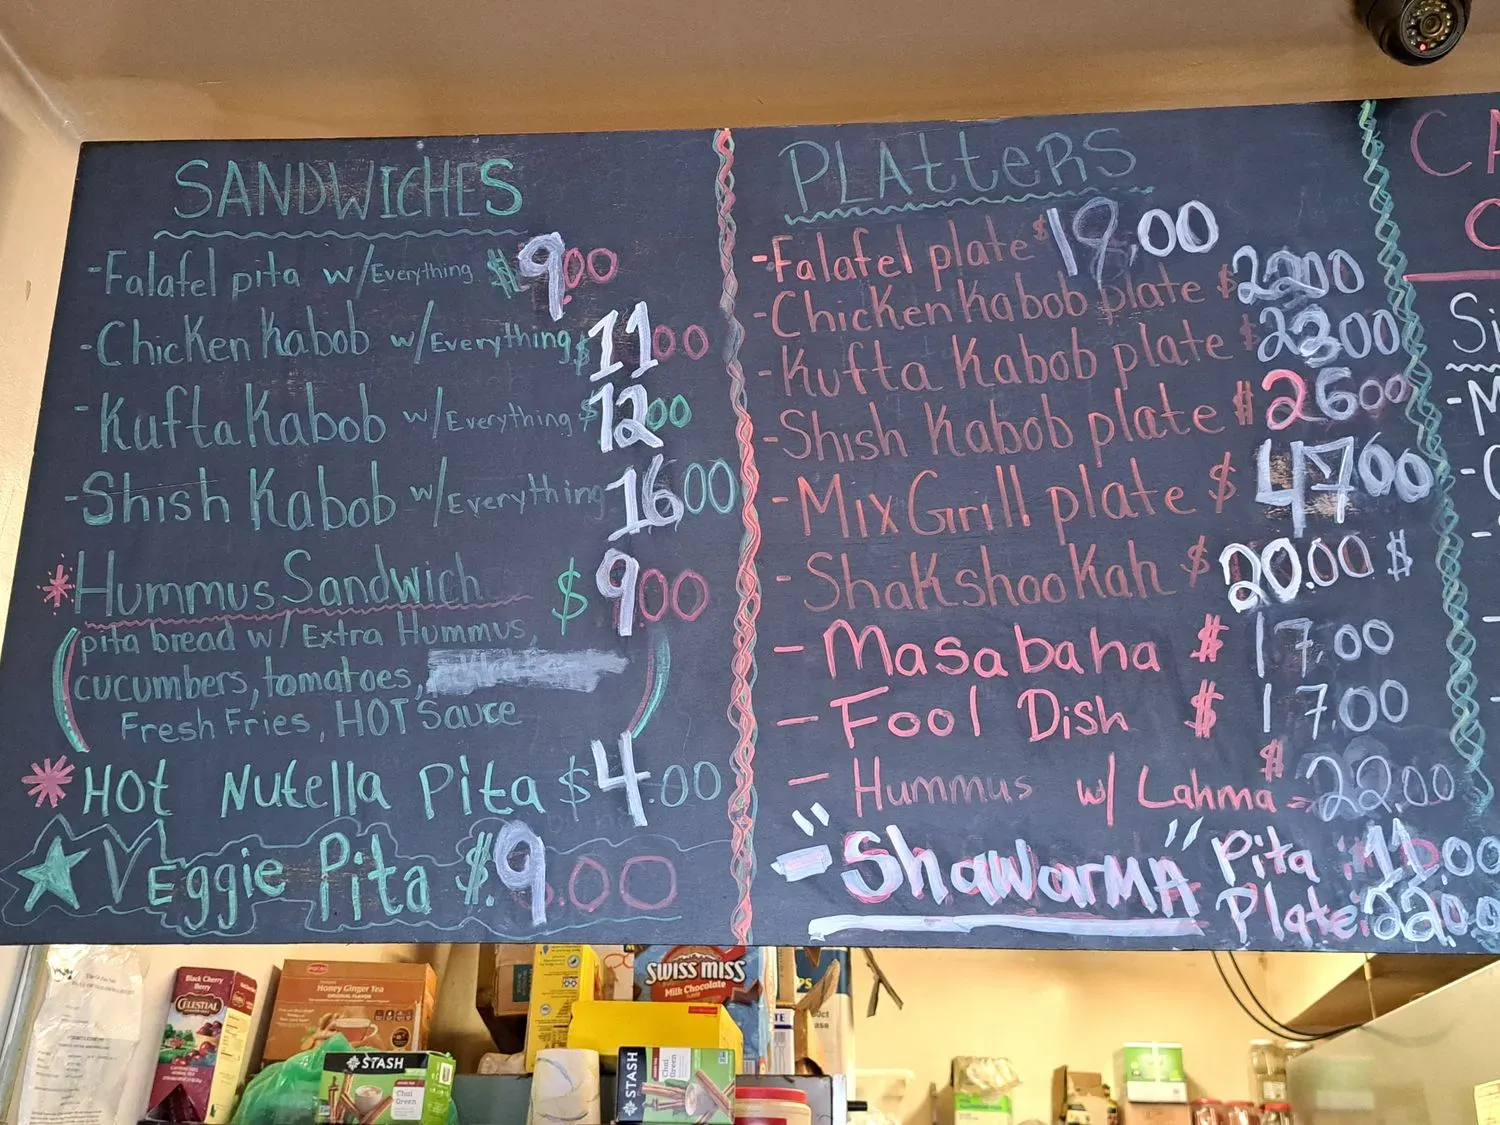 SANDWICHES
-Falafel pita w/Everything $9.00
-Chicken Kabob w/Everything $11.00
-Kufta Kabob w/Everything $12.00
-Shish Kabob w/Everything 16.00
*Hummus Sandwich $9.00
(pita bread w/ Extra Hummus,
cucumbers, tomatoes,
Fresh Fries, HOT Sauce)
*HOT Nutella Pita $4.00
★Veggie Pita $.9.00
PLAtteRS
-Falafel plate $19.00
-Chicken Kabob plate $2200
-Kufta Kabob plate $2300
-Shish Kabob plate $2600
-MixGrill plate $4700
-Shakshookah $20.00 $
-Masabaha $17.00
-Fool Dish $17.00
-Hummus w/ Lahma $22.00
-"ShaWarMA" Pita: 11.00
Plate: 22.00
CA
Si
Black Cherry
Berry
CELESTIAL
Honey Ginger Tea
ORIGINAL FLAVOR
STASH
Chai
Green
SWISS MISS
Milk Chocolate
STASH
Chai
Green